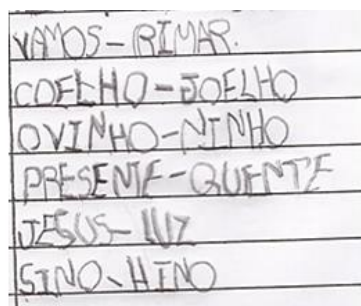 VAMOS-RIMAR.
COELHO-JOELHO
OVINHO-NINHO
PRESENTE-QUENTE
JESUS-LUZ
SINO-HINO